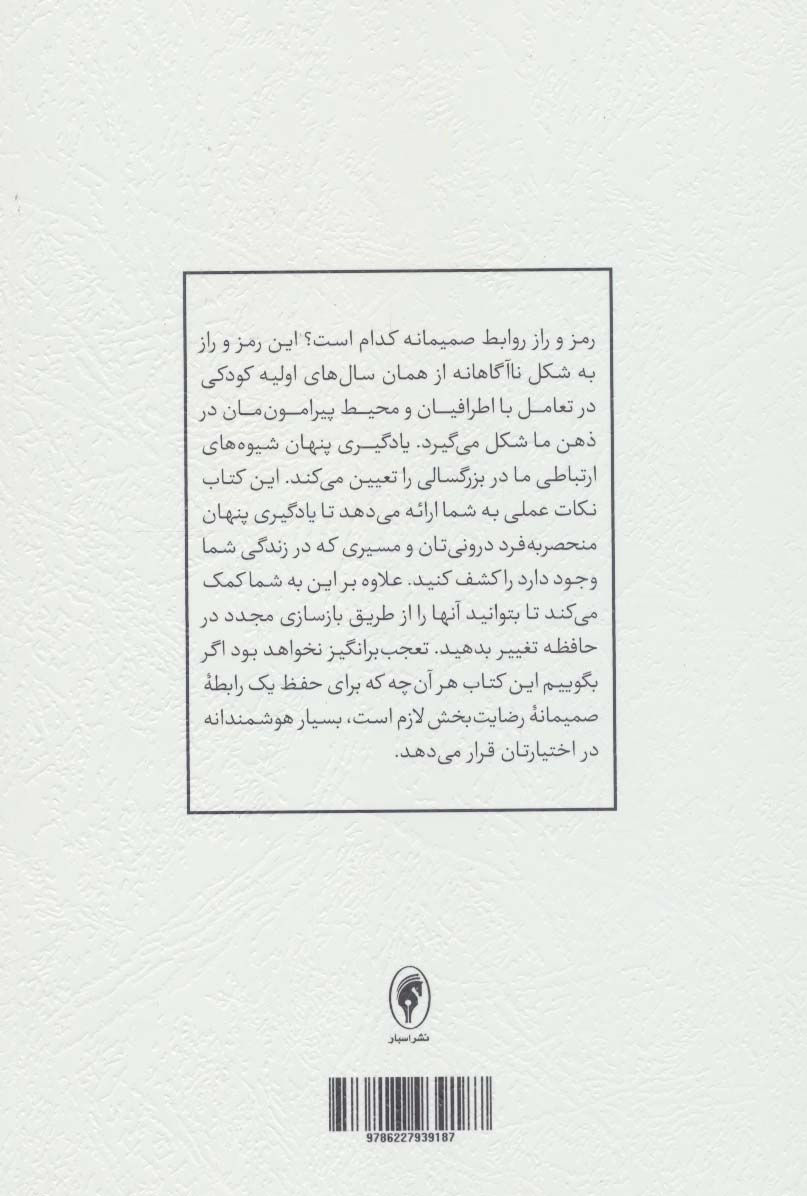 رمز و راز روابط صمیمانه کدام است؟ این رمز و راز
به شکل ناآگاهانه از همان سال‌های اولیه کودکی
در تعامل با اطرافیان و محیط پیرامون‌مان در
ذهن ما شکل می‌گیرد. یادگیری پنهان شیوه‌های
ارتباطی ما در بزرگسالی را تعیین می‌کند. این کتاب
نکات عملی به شما ارائه می‌دهد تا یادگیری پنهان
منحصربه‌فرد درونی‌تان و مسیری که در زندگی شما
وجود دارد را کشف کنید. علاوه بر این به شما کمک
می‌کند تا بتوانید آنها را از طریق بازسازی مجدد در
حافظه تغییر بدهید. تعجب‌برانگیز نخواهد بود اگر
بگوییم این کتاب هر آن‌چه که برای حفظ یک رابطهٔ
صمیمانهٔ رضایت‌بخش لازم است، بسیار هوشمندانه
در اختیارتان قرار می‌دهد.
نشر اسبار
9786227939187